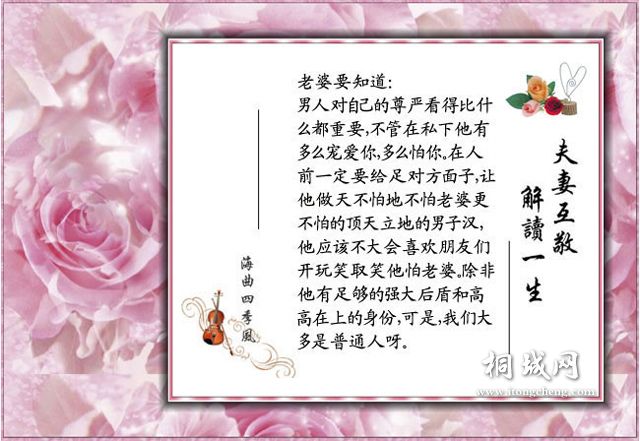 夫妻互敬
解讀一生
老婆要知道:
男人对自己的尊严看得比什
么都重要,不管在私下他有
多么宠爱你,多么怕你。在人
前一定要给足对方面子,让
他做天不怕地不怕老婆更
不怕的顶天立地的男子汉,
他应该不大会喜欢朋友们
开玩笑取笑他怕老婆。除非
他有足够的强大后盾和高
高在上的身份,可是,我们大
多是普通人呀。
海曲四季風
桐城网
www.itongcheng.com